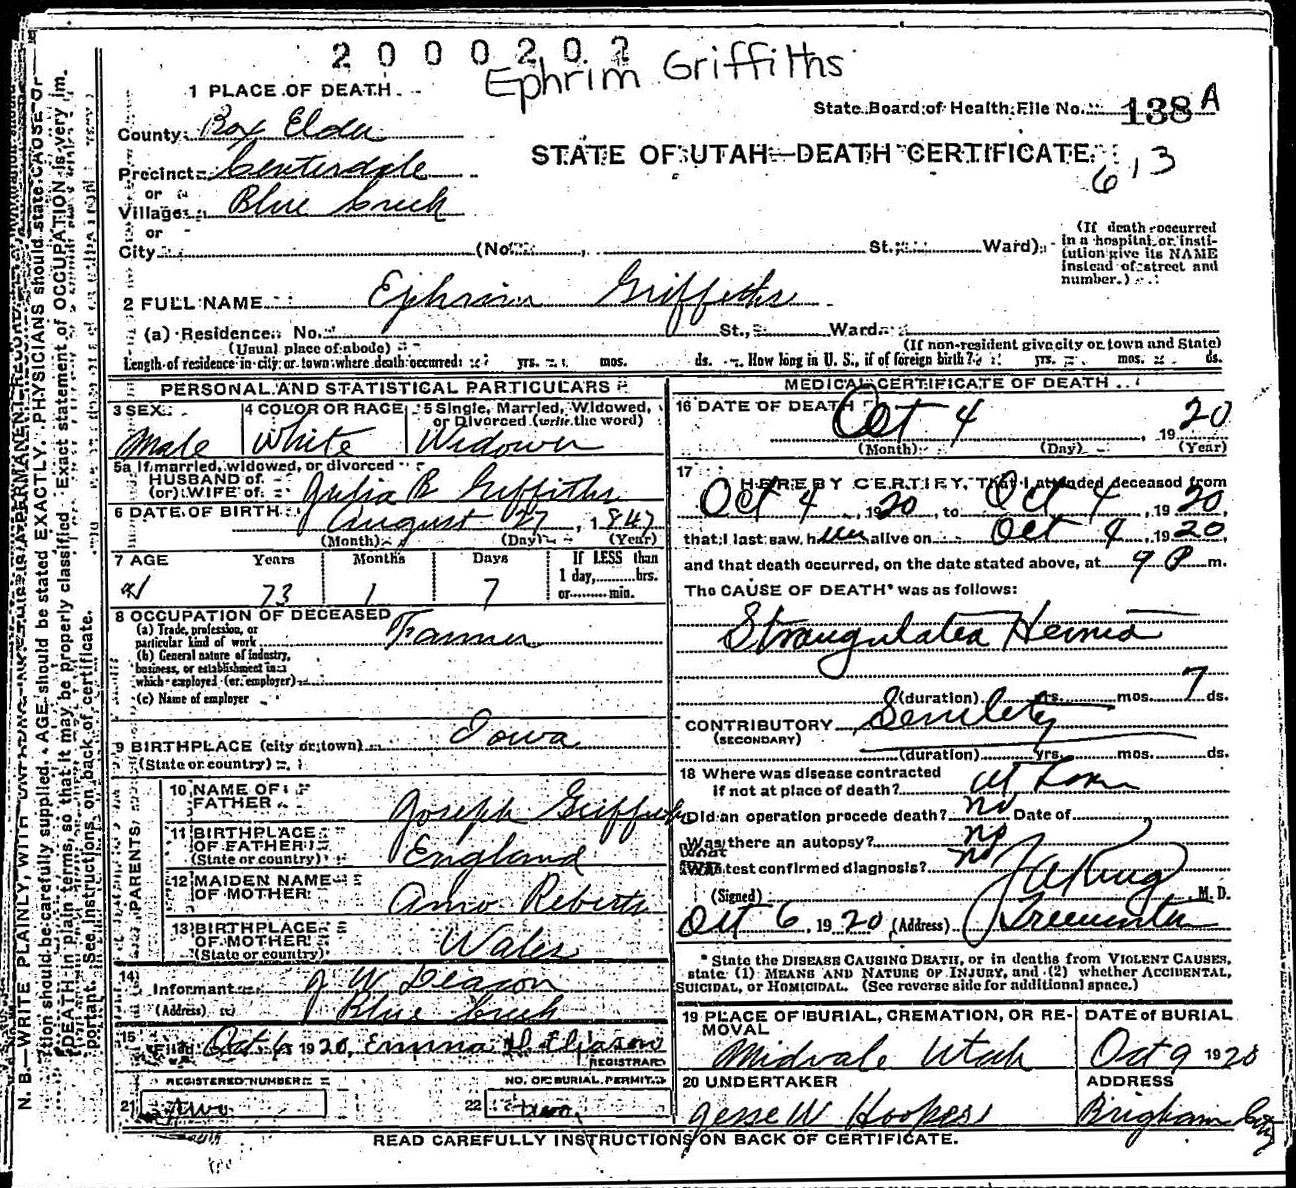 2000202
Ephrim Griffiths
1 PLACE OF DEATH
State Board of Health File No. 138 A
County Box Elder
STATE OF UTAH—DEATH CERTIFICATE
613
Precinct Centerdale
or
Village Blue Creek
or
City (No. St., Ward)
(If death occurred in a hospital or insti-
tution give its NAME instead of street and number.)
2 FULL NAME Ephraim Griffiths
(a) Residence No. St., Ward
(Usual place of abode) (If non-resident give city or town and State)
Length of residence in city or town where death occurred yrs. mos. ds. How long in U. S., if of foreign birth? yrs. mos. ds.
PERSONAL AND STATISTICAL PARTICULARS
3 SEX 4 COLOR OR RACE 5 Single, Married, Widowed, or Divorced (write the word)
Male White Widower
5a If married, widowed, or divorced
HUSBAND of
(or) WIFE of Julia B Griffiths
6 DATE OF BIRTH August 27, 1847
(Month) (Day) (Year)
7 AGE Years Months Days If LESS than
1 day, hrs.
73 1 7 or min.
8 OCCUPATION OF DECEASED
(a) Trade, profession, or
particular kind of work Farmer
(b) General nature of industry,
business, or establishment in
which employed (or employer)
(c) Name of employer
9 BIRTHPLACE (city or town) Iowa
(State or country)
PARENTS
10 NAME OF FATHER Joseph Griffiths
11 BIRTHPLACE OF FATHER England
(State or country)
12 MAIDEN NAME OF MOTHER Ann Roberts
13 BIRTHPLACE OF MOTHER Wales
(State or country)
14
Informant J W Deason
(Address) Blue Creek
15
Filed Oct 6 1920, Emma D. Eliason
REGISTRAR
REGISTERED NUMBER NO. OF BURIAL PERMIT
21 two 22 two
MEDICAL CERTIFICATE OF DEATH
16 DATE OF DEATH
Oct 4, 1920
(Month) (Day) (Year)
17 I HEREBY CERTIFY, That I attended deceased from
Oct 4, 1920, to Oct 4, 1920,
that I last saw him alive on Oct 4, 1920,
and that death occurred, on the date stated above, at 9 P m.
The CAUSE OF DEATH* was as follows:
Strangulated Hernia
(duration) yrs. mos. 7 ds.
CONTRIBUTORY Senility
(SECONDARY)
(duration) yrs. mos. ds.
18 Where was disease contracted
if not at place of death? at Home
Did an operation procede death? no Date of
Was there an autopsy? no
What test confirmed diagnosis? no
(Signed) M. D.
Oct 6, 1920 (Address) Tremonton
* State the DISEASE CAUSING DEATH, or in deaths from VIOLENT CAUSES,
state (1) MEANS AND NATURE OF INJURY, and (2) whether ACCIDENTAL,
SUICIDAL, or HOMICIDAL. (See reverse side for additional space.)
19 PLACE OF BURIAL, CREMATION, OR RE-
MOVAL
Midvale Utah
DATE OF BURIAL
Oct 9 1920
20 UNDERTAKER
Jesse W Hoopes
ADDRESS
Brigham City
READ CAREFULLY INSTRUCTIONS ON BACK OF CERTIFICATE.
N. B.—WRITE PLAINLY, WITH
tion should be carefully supplied. AGE should be stated EXACTLY. PHYSICIANS should state CAUSE OF
DEATH in plain terms, so that it may be properly classified. Exact statement of OCCUPATION is very im-
portant. See instructions on back of certificate.